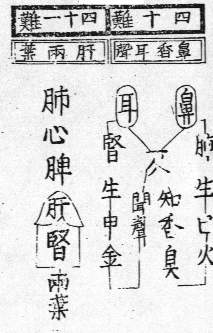 四十難
鼻香耳聲
鼻
肺生巳火
知香臭
聞聲
耳
腎生申金
四十一難
肝兩葉
肺心脾肝腎兩葉